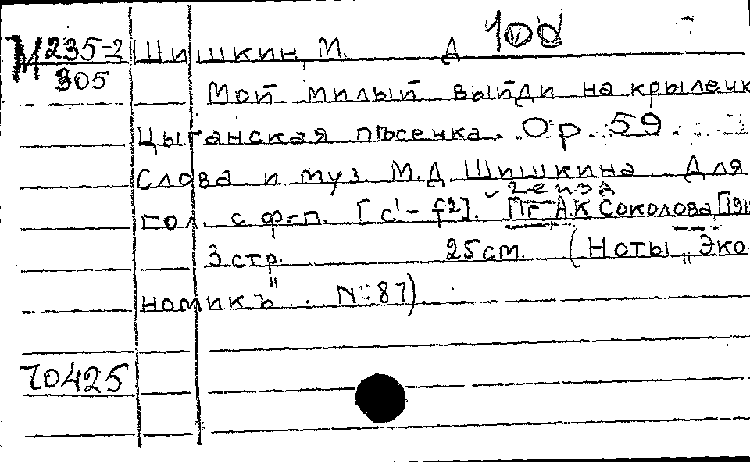 М 235-2 Шишкин, М. Д 100
305
Мой милый выйди на крылечк
Цыганская пѣсенка. Ор. 59.
Слова и муз М.Д. Шишкина Для
гол. с ф-п. [c¹ - f²]. Пг А.К Соколова, [191
3 стр. 25 см. (Ноты „Эко
номикъ". № 87)
70425